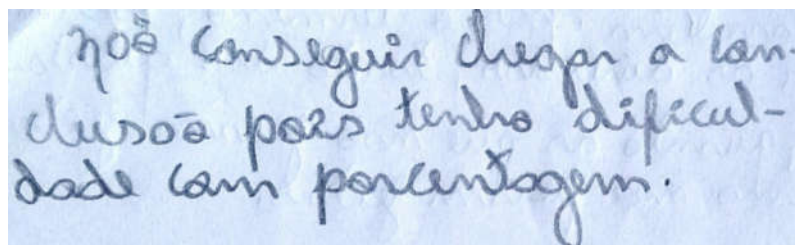 noã conseguir chegar a con-
clusoã pois tenho dificul-
dade com porcentagem.